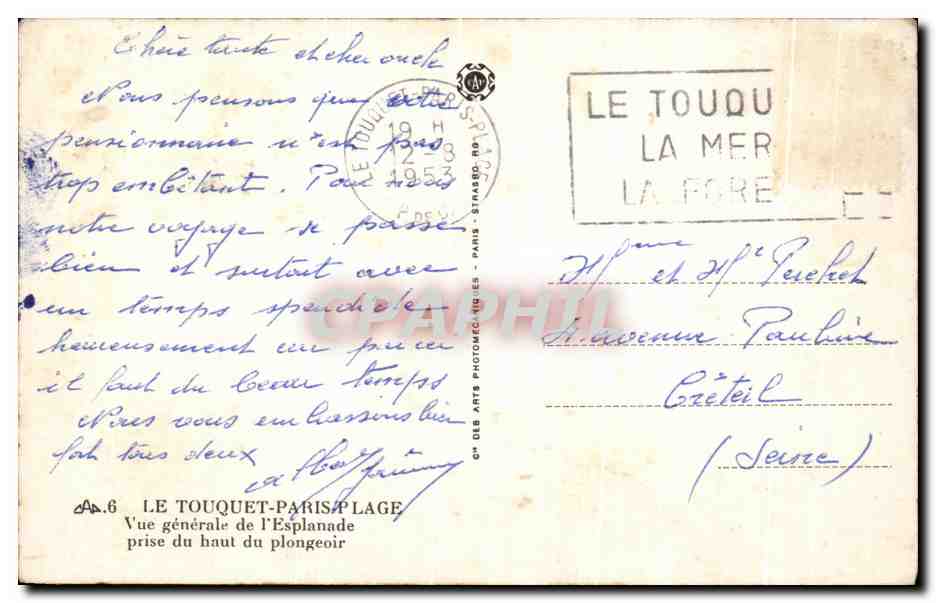 Chère tante et cher oncle
Nous pensons que votre
pensionnaire n'est pas
trop embêtant. Pour nous
notre voyage se passe
bien et surtout avec
un temps spendide
heureusement car pour
il faut du beau temps
Nous vous embrassons bien
fort tous deux
LE TOUQUET-PARIS-PLAGE
19 H
12-8
1953
P. DE C.
LE TOUQU
LA MER
LA FORE
Cie DES ARTS PHOTOMECANIQUES - PARIS - STRASBOURG
Mme et Mr
avenue Pauline
Créteil
(Seine)
CPAPHIL
.6 LE TOUQUET-PARIS-PLAGE
Vue générale de l'Esplanade
prise du haut du plongeoir